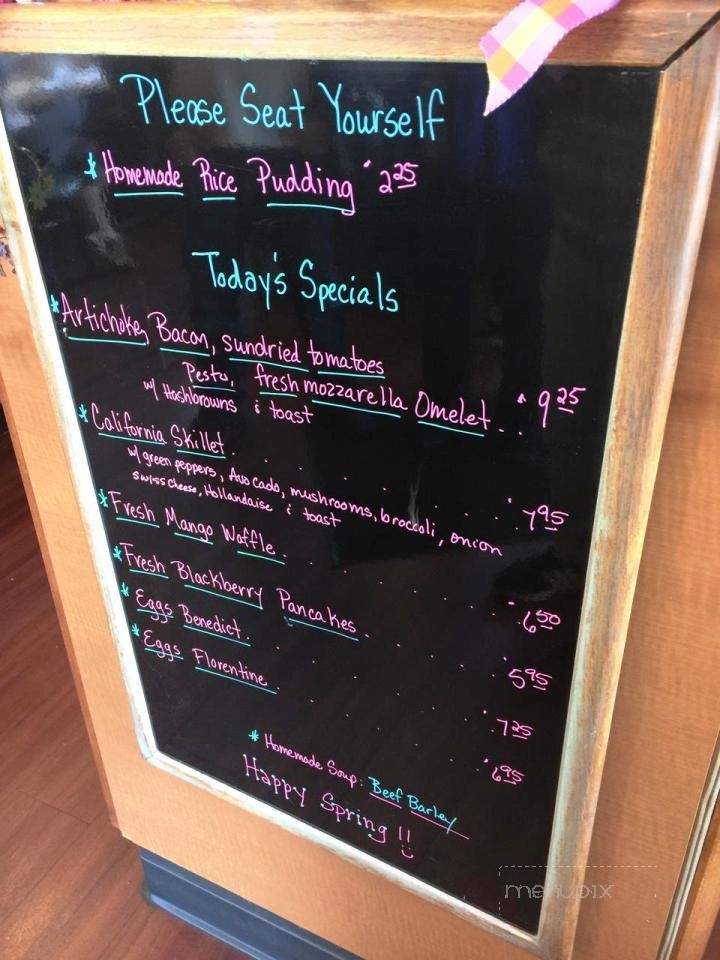 Please Seat Yourself
* Homemade Rice Pudding 2.25
Today's Specials
* Artichoke, Bacon, sundried tomatoes
Pesto, fresh mozzarella Omelet . . 9.25
w/ Hashbrowns & toast
* California Skillet . . . . . . 7.95
w/ green peppers, Avocado, mushrooms, broccoli, onion
swiss cheese, Hollandaise & toast
* Fresh Mango Waffle . . . . . . 6.50
* Fresh Blackberry Pancakes . . . . . 5.95
* Eggs Benedict . . . . . . 7.25
* Eggs Florentine . . . . . 6.95
* Homemade Soup: Beef Barley
Happy Spring!!
menupix